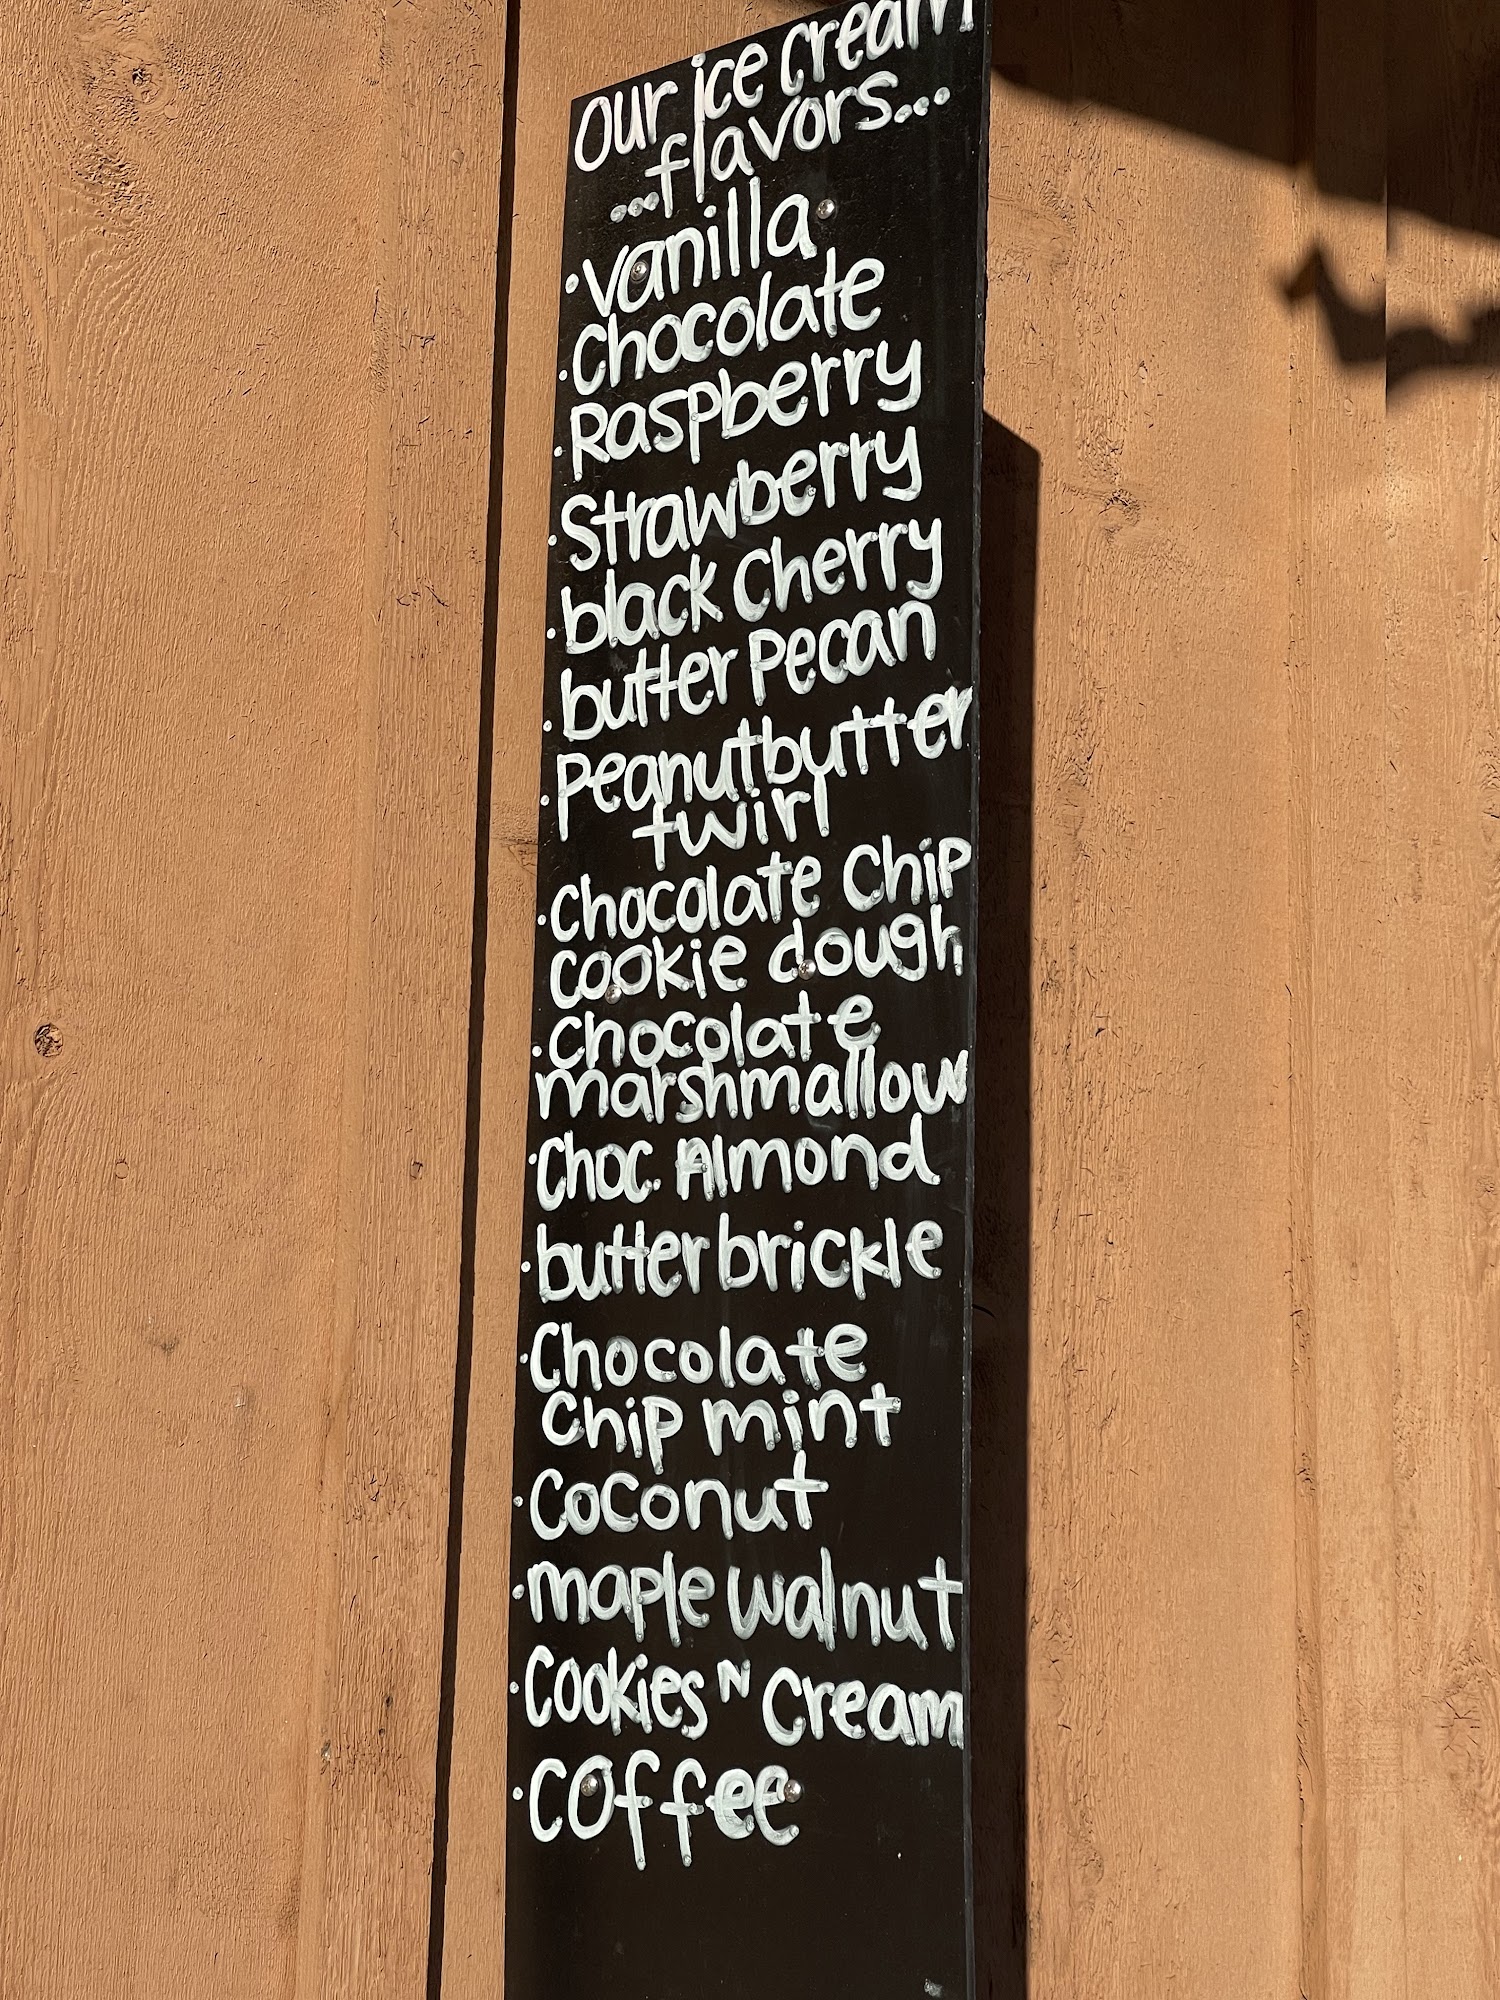 Our ice cream
...flavors...
•vanilla
•Chocolate
•Raspberry
•Strawberry
•black Cherry
•butter pecan
•Peanutbutter
twirl
•Chocolate Chip
cookie dough
•Chocolate
marshmallow
•Choc. Almond
•butter brickle
•Chocolate
Chip mint
•Coconut
•maple walnut
•Cookies N Cream
•Coffee